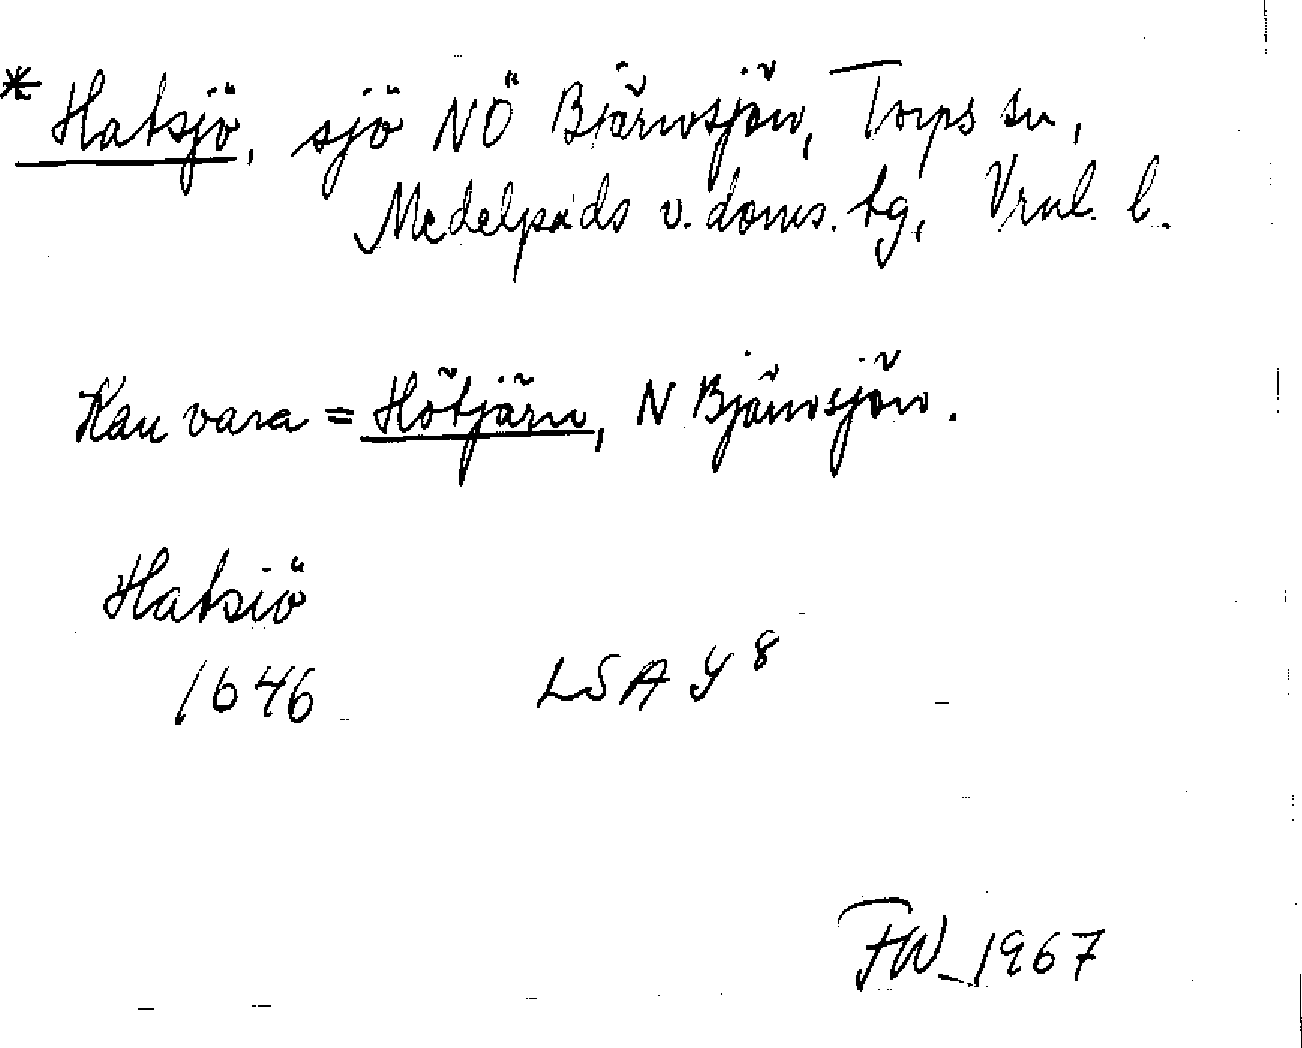 * Hatsjö, sjö NÖ Bjärnsjön, Torps sn,
Medelpads v. doms. tg, Vrnl. l.
Kan vara = Hötjärn, N Bjärnsjön.
Hatsiö
1646 LSA Y 8
FW 1967